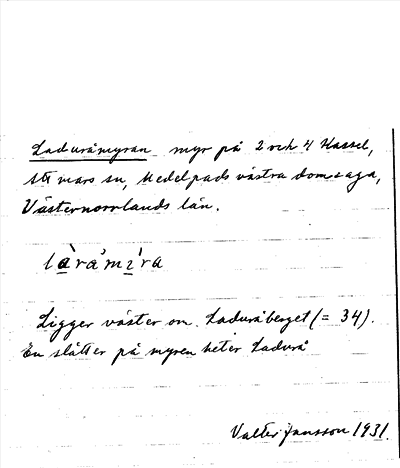 Laduråmyran myr på 2 och 4 Hassel,
mars sn, Medelpads västra domsaga,
Västernorrlands län.
Ligger väster om Laduråberget (= 34).
En slåtter på myren heter Ladurå
Valter Jansson 1931.